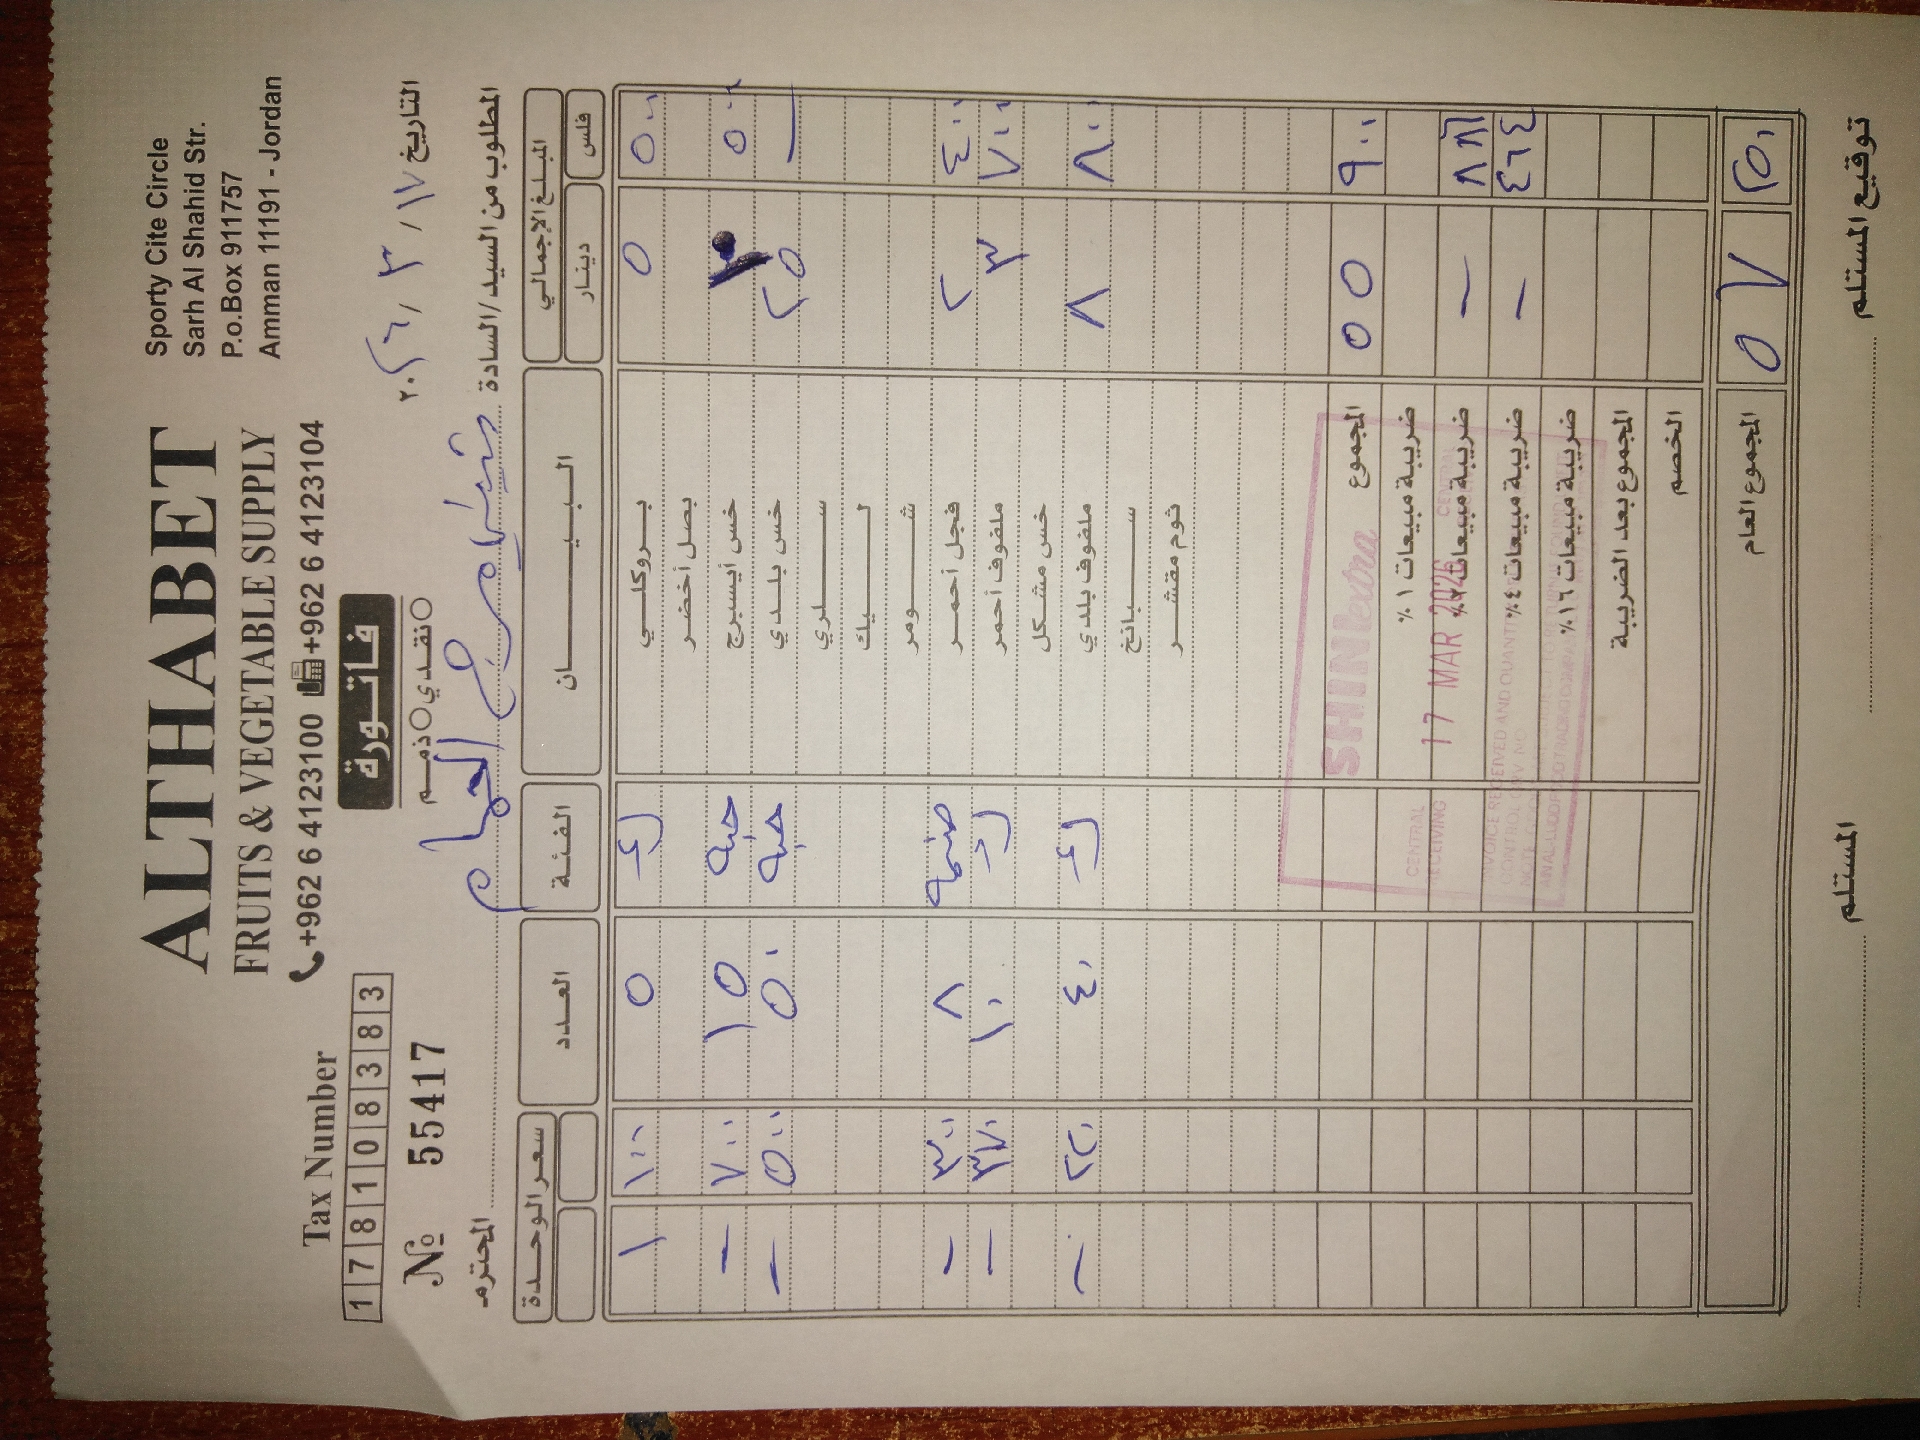 ALTHABET
FRUITS & VEGETABLE SUPPLY
+962 6 4123100 +962 6 4123104
Sporty Cite Circle
Sarh Al Shahid Str.
P.o.Box 911757
Amman 11191 - Jordan
Tax Number
1 7 8 1 0 8 3 8 3
№ 55417
فاتورة
نقدي ذمم
التاريخ ١٧ / ٣ / ٢٠٢٦
المطلوب من السيد/السادة
المحترم
المبلغ الإجمالي البيـــــان الفئة العدد سعر الوحدة
فلس دينار
٥٠٠ ٥ بروكلي ٥ ١٠٠ ١
بصل أخضر
٥٠٠ خس أيسبرج حبه ١٥ ٧٠٠ –
– ٢٥ خس بلدي حبه ٥٠ ٥٠٠ –
سلري
ليك
شومر
٤٠٠ ٢ فجل أحمر ٨ ٣٠٠ –
٧٠٠ ٣ ملفوف أحمر ١٠ ٣٧٠ –
خس مشكل
٨٠٠ ٨ ملفوف بلدي ٤٠ ٢٢٠ –
سبانخ
ثوم مقشر
٩٠٠ ٥٥ المجموع
ضريبة مبيعات ١ %
– ضريبة مبيعات ٢%
٤٦٤ – ضريبة مبيعات ٤ %
ضريبة مبيعات ١٦ %
المجموع بعد الضريبة
الخصم
٢٥٠ ٥٧ المجموع العام
SHINextra
CENTRAL
RECEIVING
17 MAR 2026
CENTRAL
المستلم
توقيع المستلم